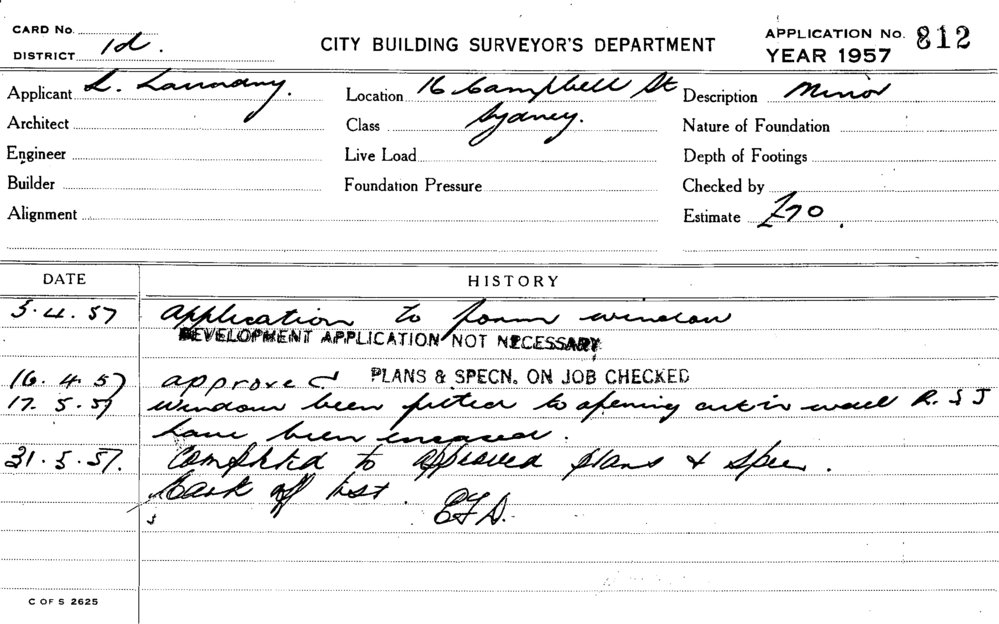 CARD No.
DISTRICT 1d.
CITY BUILDING SURVEYOR'S DEPARTMENT
APPLICATION No. 812
YEAR 1957
Applicant L.
Location 16 Campbell St
Description Minor
Architect
Class Sydney.
Nature of Foundation
Engineer
Live Load
Depth of Footings
Builder
Foundation Pressure
Checked by
Alignment
Estimate £70.
DATE
HISTORY
5.4.57 application to form window
DEVELOPMENT APPLICATION NOT NECESSARY
16.4.57 approved PLANS & SPECN. ON JOB CHECKED
17.5.57 window been fitted to opening cut in wall R.S J
have been encased.
31.5.57. Completed to approved plans & spec.
Mark off list.
C OF S 2625